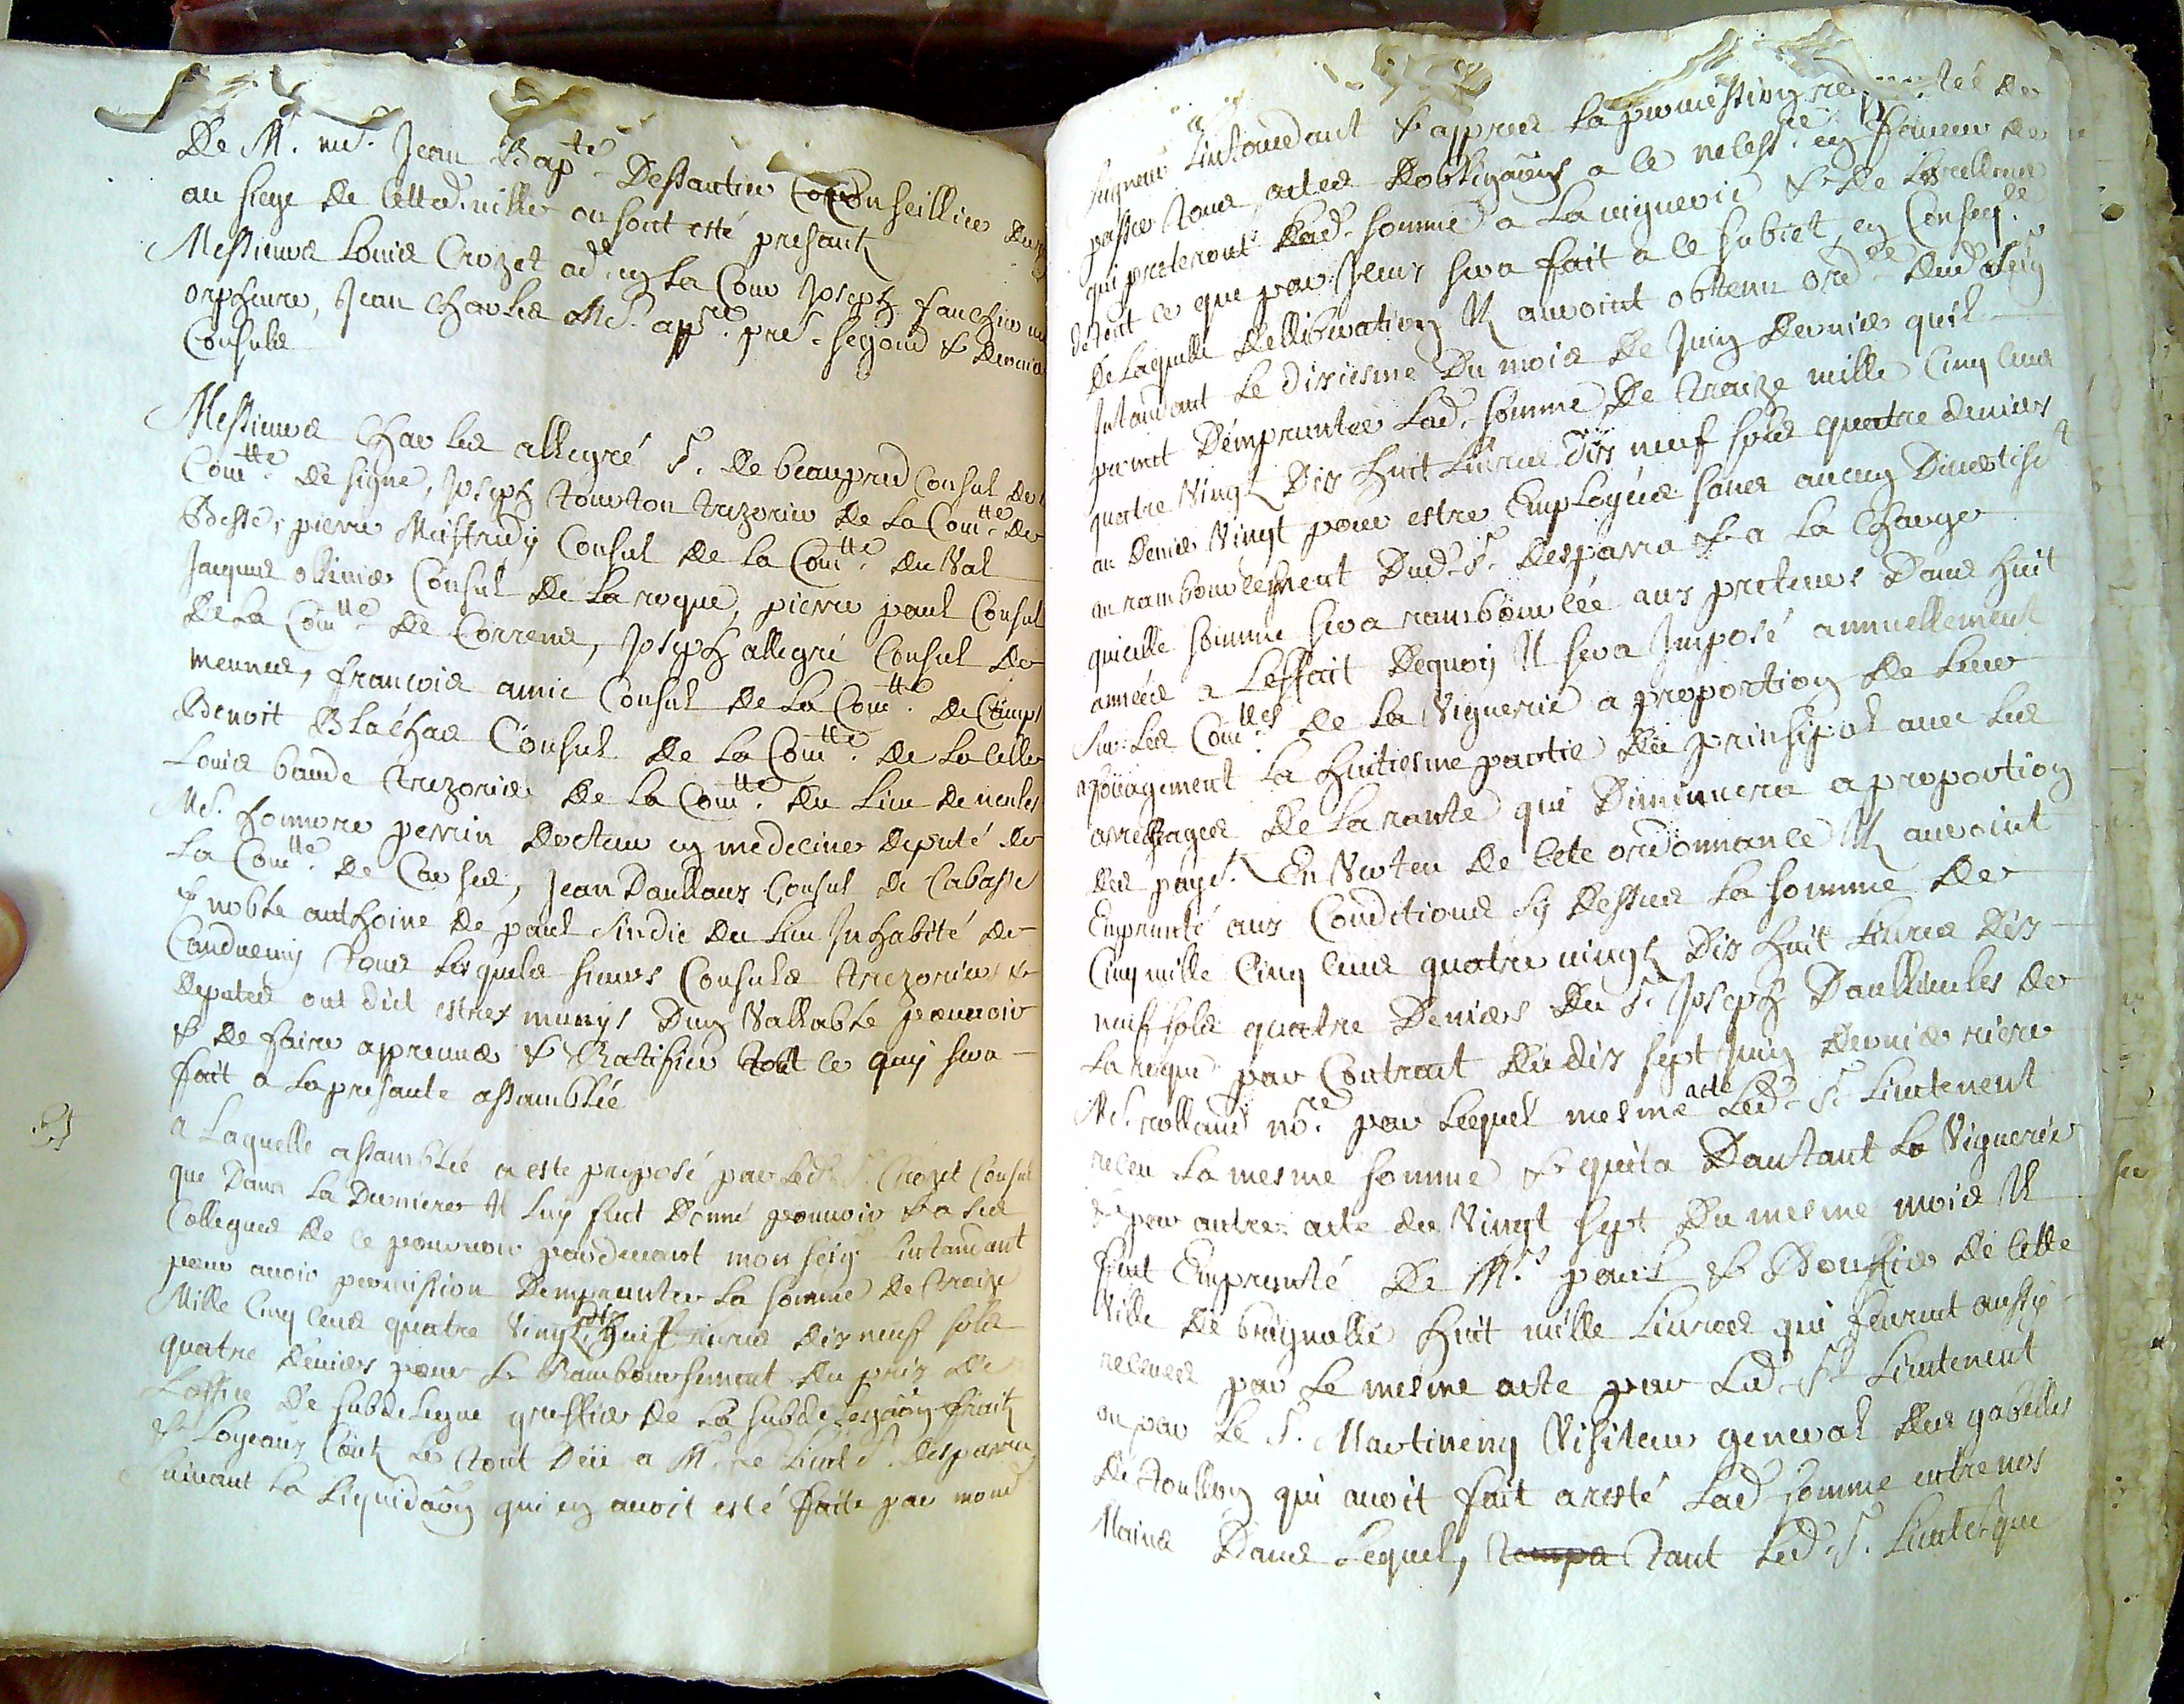 De M. me. Jean Bapte. Dessautier Conseillier du
au siege de cette ville ou sont esté presants
Messieurs Louis Crozet ad. en la Cour Joseph fauchier
orpheure, Jean Charles Me. apre. pre. segond & dernier
Consuls
Messieurs Charles allegré Sr. de beaupred Consul de
Comtte. de signe, Joseph tourton trezorier de la Comtte. de
Besse, pierre Maifredy Consul de la Comtte. du Val
Jacques ollivier Consul de la roque, pierre paul Consul
de la Comtte. de Correns, Joseph allegré Consul de
mennes, francois amic Consul de la Comtte. de Camps
Benoit Blachas Consul de la Comtte. de la Celle
Louis baude trezorier de la Comtte. du Lieu de
Me. honnore perrin docteur en medecine deputé de
la Comtte. de Carses, Jean Daullans Consul de Cabasse
& noble anthoine de paul sindic du Lieu Inhabité de
Candumy tous lesquels sieurs Consuls trezoriers &
deputés ont dict estres munys dun vallable pouvoir
& de faire appreuver & Ratifier tout ce quy sera
fait a la presante assamblée
a Laquelle assamblée a este proposé par Led. Sr. Crozet Consul
que dans la derniere Il luy fut donné pouvoir & a ses
Collegues de ce pourvoir pardevant monseigr. Lintandant
pour avoir permission demprunter la somme de traize
Mille Cinq cens quatre vingt dix huit livres dix neuf sols
quatre deniers pour le Rambourcement du prix de
Loffice de subdelegue greffier de la subdelegaôn fraix
& Loyeaux Coutz le tout deü a M. le Lieut Sr. desparra
suivant la Liquidaôn qui en avoit esté faite par mond
Seigneur Lintandant & appres la permission raportée de
passer tous actes dobligaôns a ce necessres. en faveur de
qui preteront lad. somme a la viguerie &
de tout ce que par sera fait a ce subiet, en Conseqe.
de Laquelle delliberation Ils auroint obtenu orde. dud seig
Intandant le dixiesme du mois de Juin dernier quil
permet demprunter lad. somme de traize mille Cinq cens
quatre vingt dix huit Livres dix neuf sols quatre deniers
au denier vingt pour estre Employés sans aucun divertist
au rambourcement dud. Sr. desparra & a la charge
quicelle somme sera rambourcée aux preteurs dans huit
années a Leffait dequoy Il sera Imposé annuellement
sur les Comttes de la Viguerie a proportion de Leur
affoüagement la huitiesme partie du prinsipal avec les
arrerages de la rante qui diminuera a proportion
des payet. En Vertu de cete ordonnance Ils auroint
Emprunté aux Conditions sy dessus la somme de
Cinq mille Cinq cens quatre vingt dix huit Livres dix
neuf sols quatre deniers du Sr. Joseph Daullioules de
la roque par Contrat du dix sept Juin dernier riere
Me. rolland nore. par lequel mesme acte led. Sr. Lieutenent
receu la mesme somme & quita dautant la Viguerie
& par autre acte du vingt sept du mesme mois Il
fut Emprunté de Mrs. paul & de cette
Ville de brignolle huit mille Livres qui feurent aussy
receues par le mesme acte par led. Sr. Lieutenent
ou par le Sr. Martineng Visiteur general des gabelles
de toullon qui avoit fait aresté lad. somme entre nos
Mains dans lequel, tant led. Sr. Lieutet. que